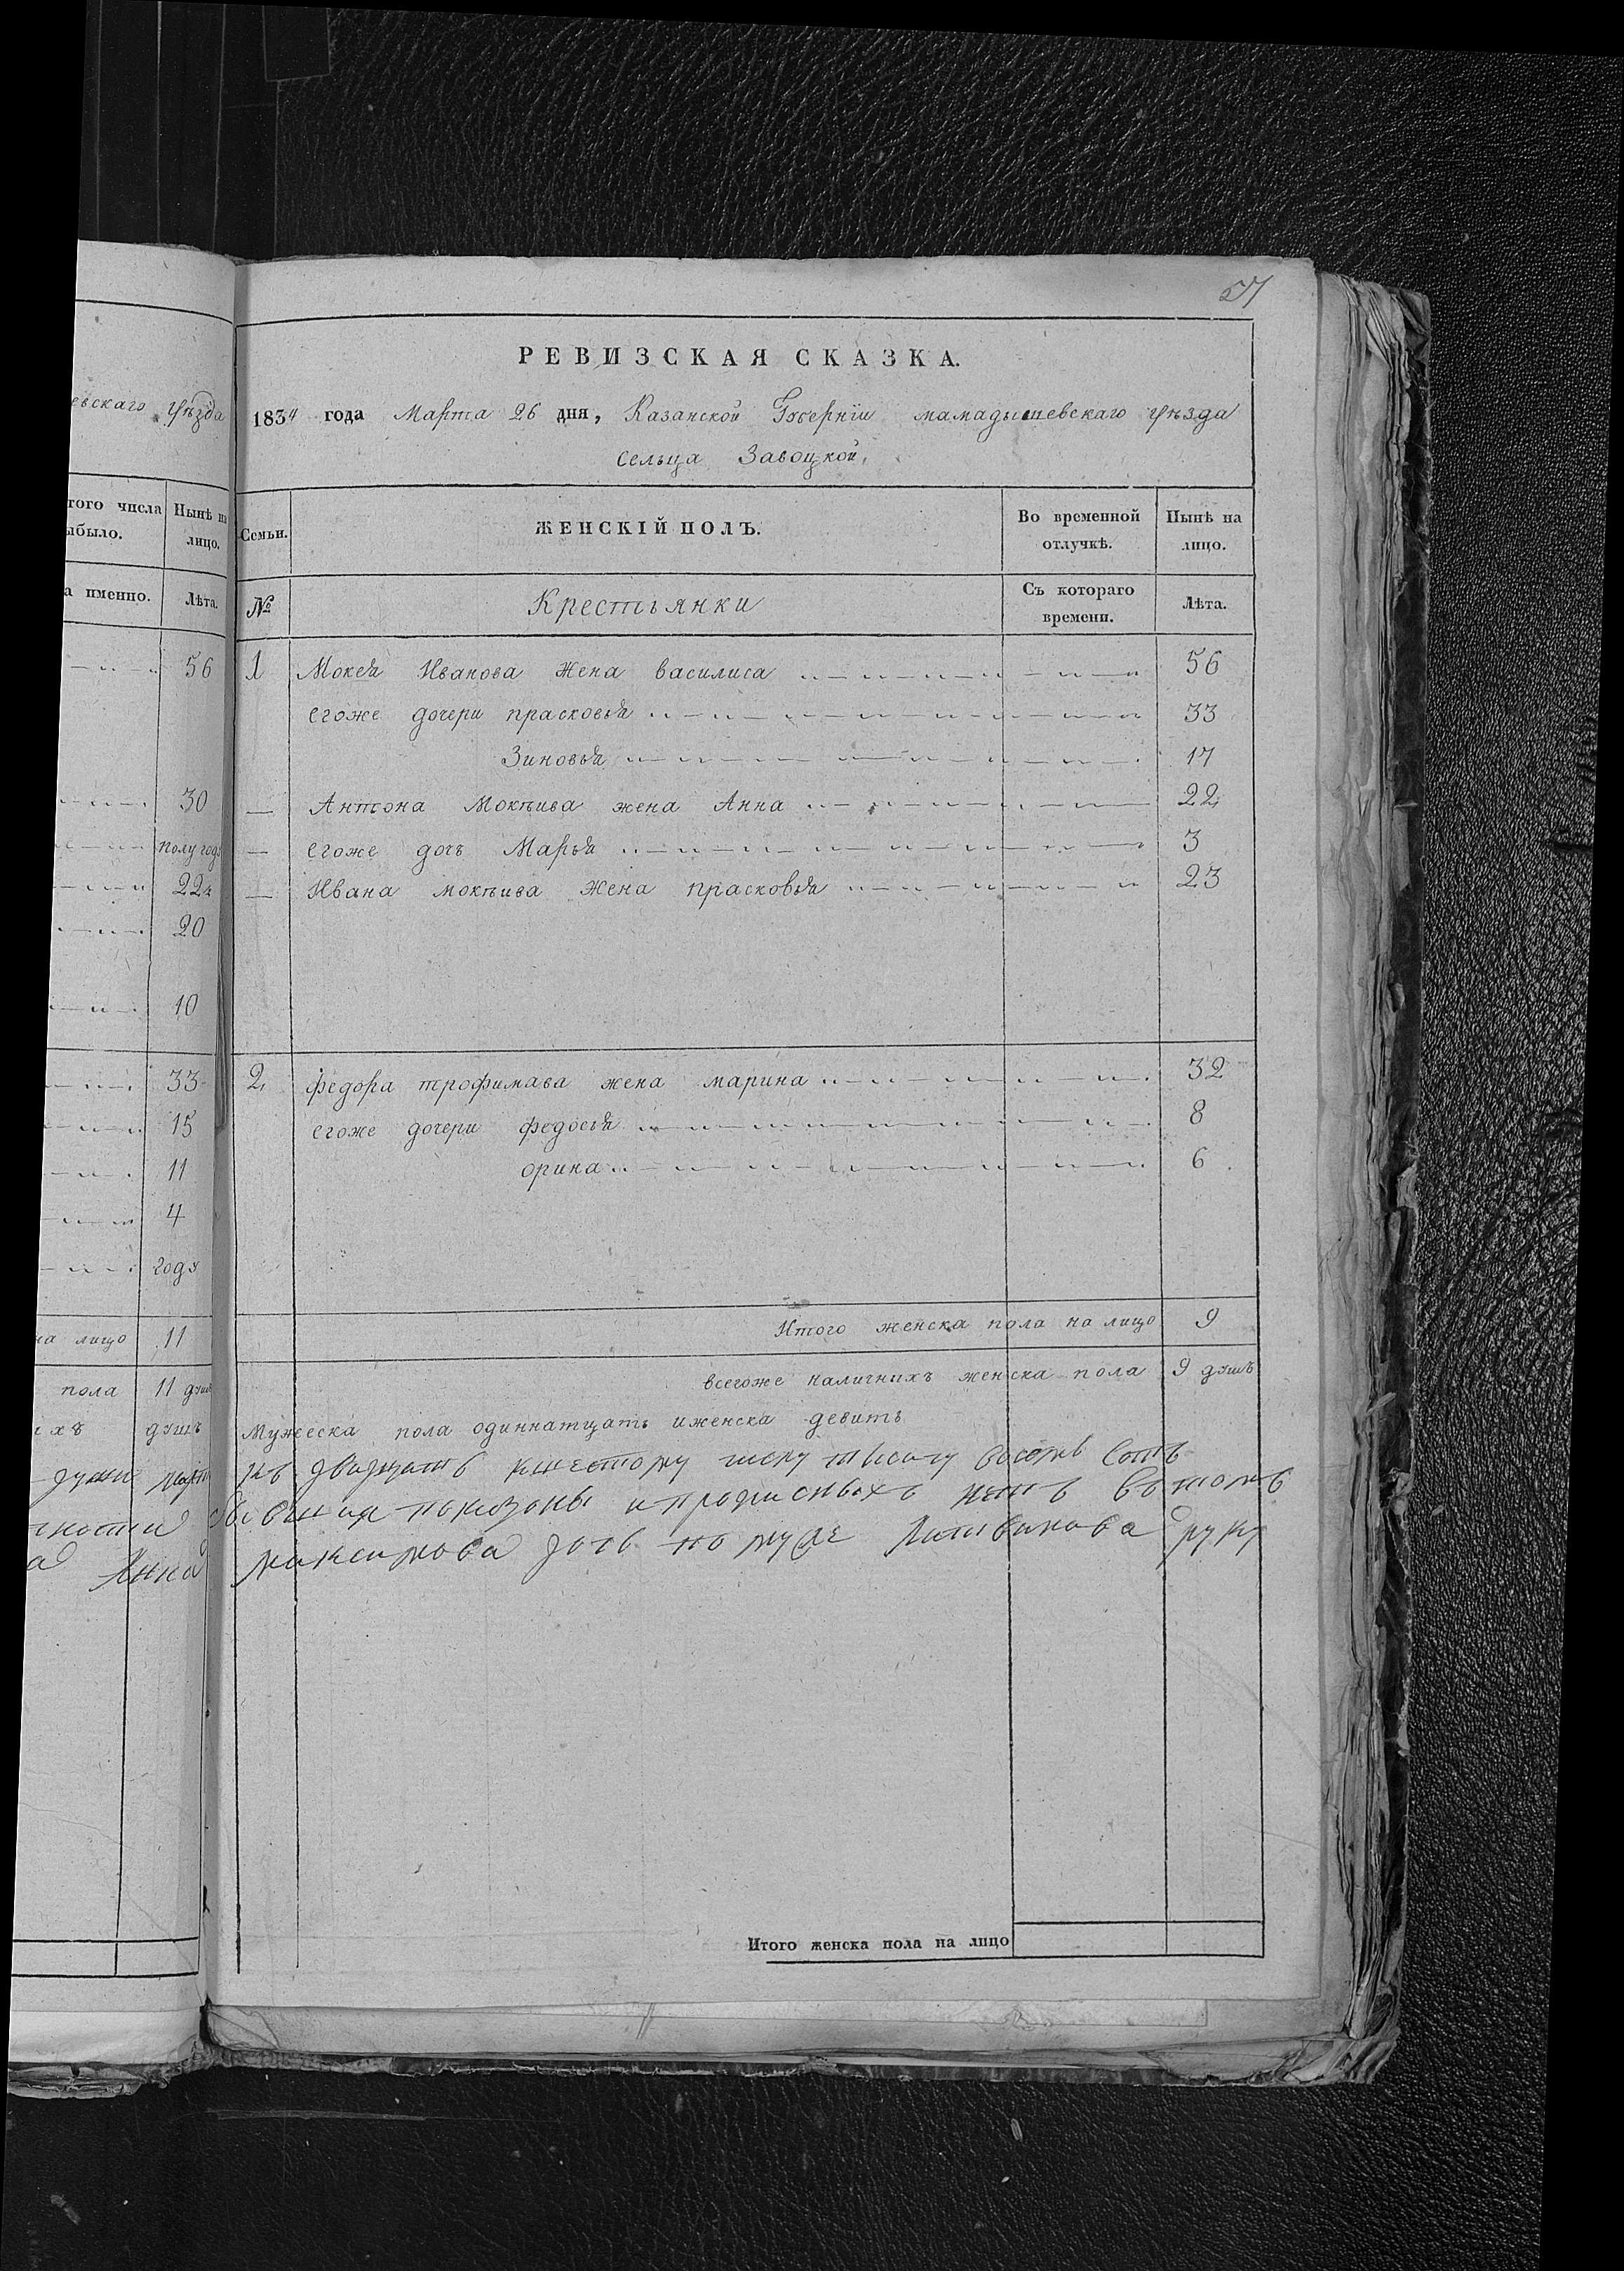 57
РЕВИЗСКАЯ СКАЗКА.
евскаго уѣзда
1834 года Марта 26 дня, Казанской Губернїи мамадышевскаго уѣзда
сельца Завоцкой.
того числа
было.
Нынѣ на
лицо.
Семьи.
ЖЕНСКІЙ ПОЛЪ.
Во временной
отлучкѣ.
Нынѣ на
лицо.
а именно.
Лѣта.
№
Крестьянки
Съ котораго
времени.
Лѣта.
56
1 Мокея Иванова жена василиса 56
егоже дочери прасковья 33
Зиновья 17
30
— Антона Мокѣива жена Анна 22
полугода
— егоже дочь Марья 3
22
— Ивана мокѣива жена прасковья 23
20
10
33
2 федора трофимава жена марина 32
15
егоже дочери федосья 8
11
орина 6
4
году
на лицо 11
Итого женска пола на лицо 9
пола 11 душъ
всегоже наличнихъ женска пола 9 душъ
ихъ душъ
Мужеска пола одиннатцать иженска девить
двацать кшестому числу тысечу восемь сотъ
показоны ипрописныхъ нетъ втомъ
Анна максимова дочь по муже Литвинова руку
Итого женска пола на лицо